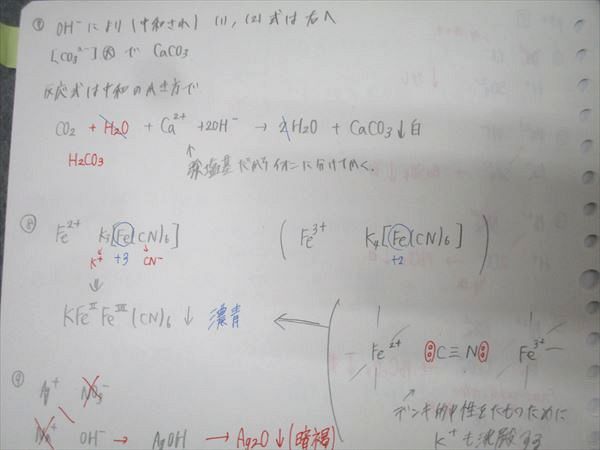 ⑦ OH⁻により(中和され) (1), (2)式は右へ
[CO₃²⁻] 大 で CaCO₃
反応式は中和の書き方で
CO₂ + H₂O + Ca²⁺ + 2OH⁻ → 2H₂O + CaCO₃↓白
H₂CO₃
塩基だからイオンに分けてかく。
⑧ Fe²⁺ K₃[Fe(CN)₆] ( Fe³⁺ K₄[Fe(CN)₆] )
K⁺ +3 CN⁻ +2
⇓
KFe^ⅡFe^Ⅲ(CN)₆ ↓ 濃青 ←
Fe²⁺ C≡N Fe³⁺
デンキ的中性をたもつために
K⁺も沈殿する
⑨ Ag⁺ NO₃⁻
Na⁺ OH⁻ → AgOH → Ag₂O↓(暗褐)